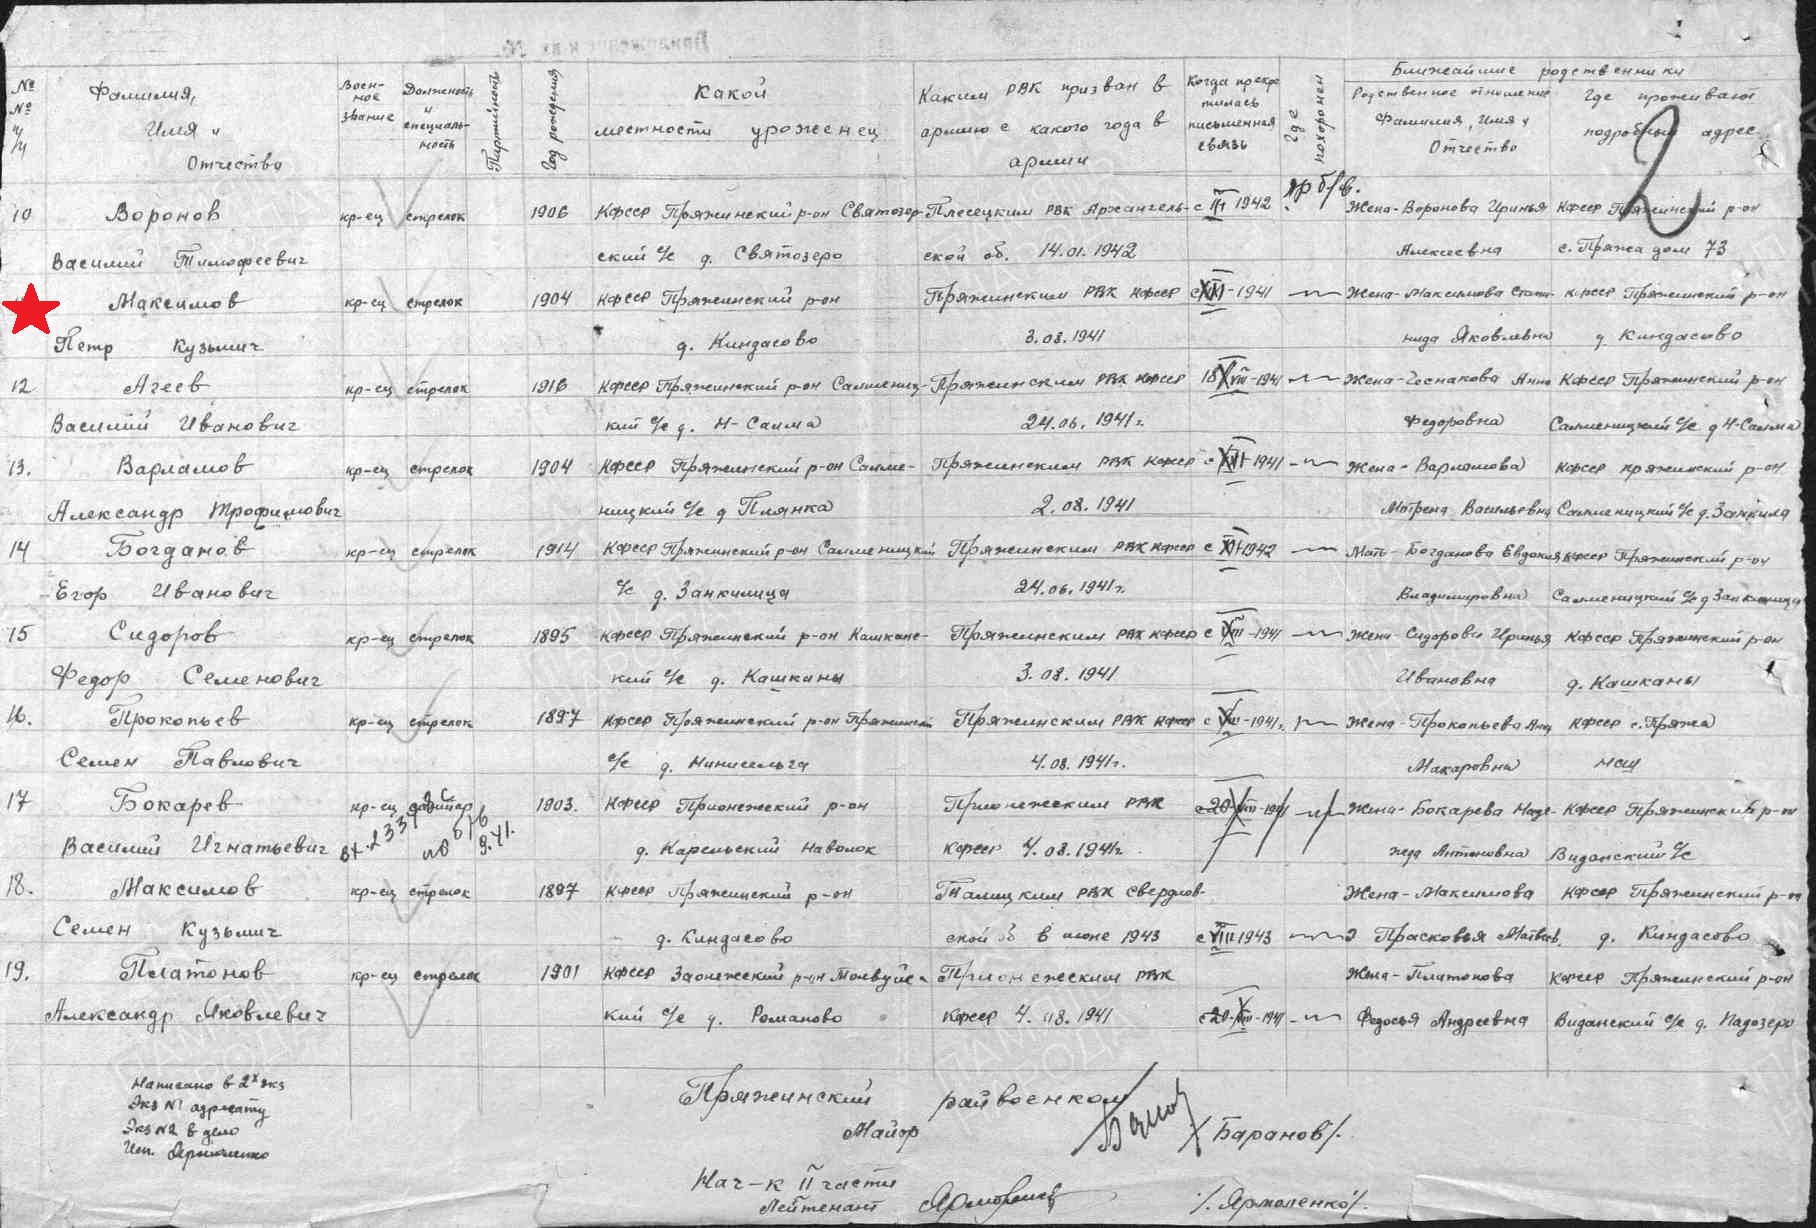 № № п/п Фамилия, Имя и Отчество Воен-ное звание Должность и специаль-ность Партийность Год рождения Какой местности уроженец Каким РВК призван в армию с какого года в армии Когда прекра тилась письменная связь Где похоронен Ближайшие родственники
Родственное отношение Фамилия, Имя и Отчество Где проживают подробный адрес
2
пр б/в.
10 Воронов кр-ец стрелок 1906 КФССР Пряжинский р-он Святозер- Плесецким РВК Архангель- с 1942 Жена-Воронова Иринья КФССР Пряжинский р-он
Василий Тимофеевич ский с/с д. Святозеро ской об. 14.01.1942 Алексеевна с. Пряжа дом 73
Максимов кр-ец стрелок 1904 КФССР Пряжинский р-он Пряжинским РВК КФССР с XI-1941 Жена-Максимова Степа- КФССР Пряжинский р-он
Петр Кузьмич д. Киндасово 3.08.1941 нида Яковлевна д Киндасово
12 Агеев кр-ец стрелок 1916 КФССР Пряжинский р-он Салмениц- Пряжинским РВК КФССР 18 VIII-1941 Жена-Чеснакова Анна КФССР Пряжинский р-он
Василий Иванович кий с/с д. Н-Салма 24.06.1941г. Федоровна Салменицкий с/с д Н-Салма
13. Варламов кр-ец стрелок 1904 КФССР Пряжинский р-он Салме- Пряжинским РВК КФССР с 1941 Жена-Варламова КФССР Пряжинский р-он
Александр Трофимович ницкий с/с д Плянка 2.08.1941 Матрена Васильевна Салменицкий с/с д.
14 Богданов кр-ец стрелок 1914 КФССР Пряжинский р-он Салменицкий Пряжинским РВК КФССР с 1942 Мать-Богданова Евдокия КФССР Пряжинский р-он
Егор Иванович с/с д. Занкилица 24.06.1941г. Владимировна Салменицкий с/с д Занкилица
15 Сидоров кр-ец стрелок 1895 КФССР Пряжинский р-он Кашкан- Пряжинским РВК КФССР с VIII-1941 Жена-Сидорова Иринья КФССР Пряжинский р-он
Федор Семенович кий с/с д. Кашканы 3.08.1941 Ивановна д. Кашканы
16. Прокопьев кр-ец стрелок 1897 КФССР Пряжинский р-он Пряжинский Пряжинским РВК КФССР с VIII-1941г. Жена-Прокопьева Анна КФССР с. Пряжа
Семен Павлович с/с д. Нинисельга 4.08.1941г. Макаровна
17 Бокарев кр-ец 1903. КФССР Прионежский р-он Прионежским РВК с 20 VIII-1941 Жена-Бокарева Наде- КФССР Пряжинский р-он
Василий Игнатьевич д. Карельский Наволок КФССР 4.08.1941г жда Антоновна Виданский с/с
18. Максимов кр-ец стрелок 1897 КФССР Пряжинский р-он Талицким РВК Свердлов- Жена-Максимова КФССР Пряжинский р-он
Семен Кузьмич д. Киндасово ской в июне 1943 с VIII 1943 Прасковья Матвеев. д. Киндасово
19. Платонов кр-ец стрелок 1901 КФССР Заонежский р-он Толвуйс- Прионежским РВК Жена-Платонова КФССР Пряжинский р-он
Александр Яковлевич кий с/с д. Романово КФССР 4.08.1941 с 20-VIII-1941 Федосья Андреевна Виданский с/с д. Падозеро
Написано в 2х экз
Экз №1 адресату
Экз №2 в дело
Исп. Ярмоленко
Пряжинский райвоенком
Майор /Баранов/.
Нач-к II части
Лейтенант /Ярмоленко/.